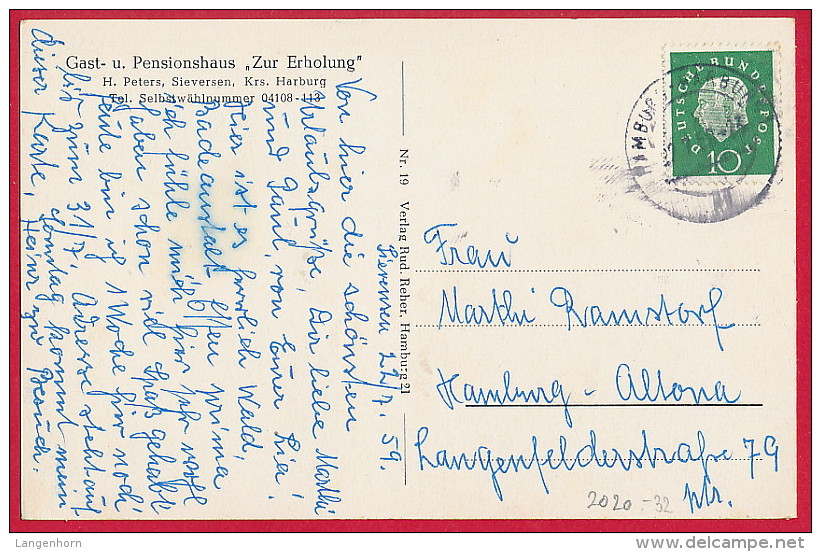 Gast- u. Pensionshaus „Zur Erholung"
H. Peters, Sieversen, Krs. Harburg
Tel. Selbstwählnummer 04108-113
Sieversen 22/7. 59.
Von hier die schönsten
Urlaubsgrüße, Dir liebe Marthi
und Paul, von Eurer Lia!
Hier ist es herrlich Wald,
Badeanstalt Essen prima
ich fühle mich hier sehr wohl
haben schon viel Spaß gehabt
heute bin ich 1 Woche hier noch
bis zum 31/7. Adresse steht auf
dieser Karte, Sonntag kommt mein
Heinz zu Besuch.
Nr. 19 Verlag Rud. Reher, Hamburg 21
DEUTSCHE BUNDESPOST
10
HAMBURG
Frau
Marthi Ramstorf
Hamburg - Altona
Langenfelderstraße 79
ptr.
2020-32
Langenhorn
www.delcampe.net